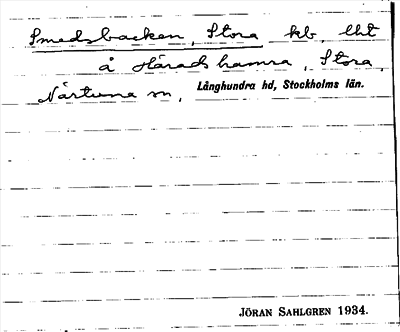 Smedsbacken, Stora kb, lht
å Härads hamra, Stora,
Närtuna sn, Långhundra hd, Stockholms län.
JÖRAN SAHLGREN 1934.